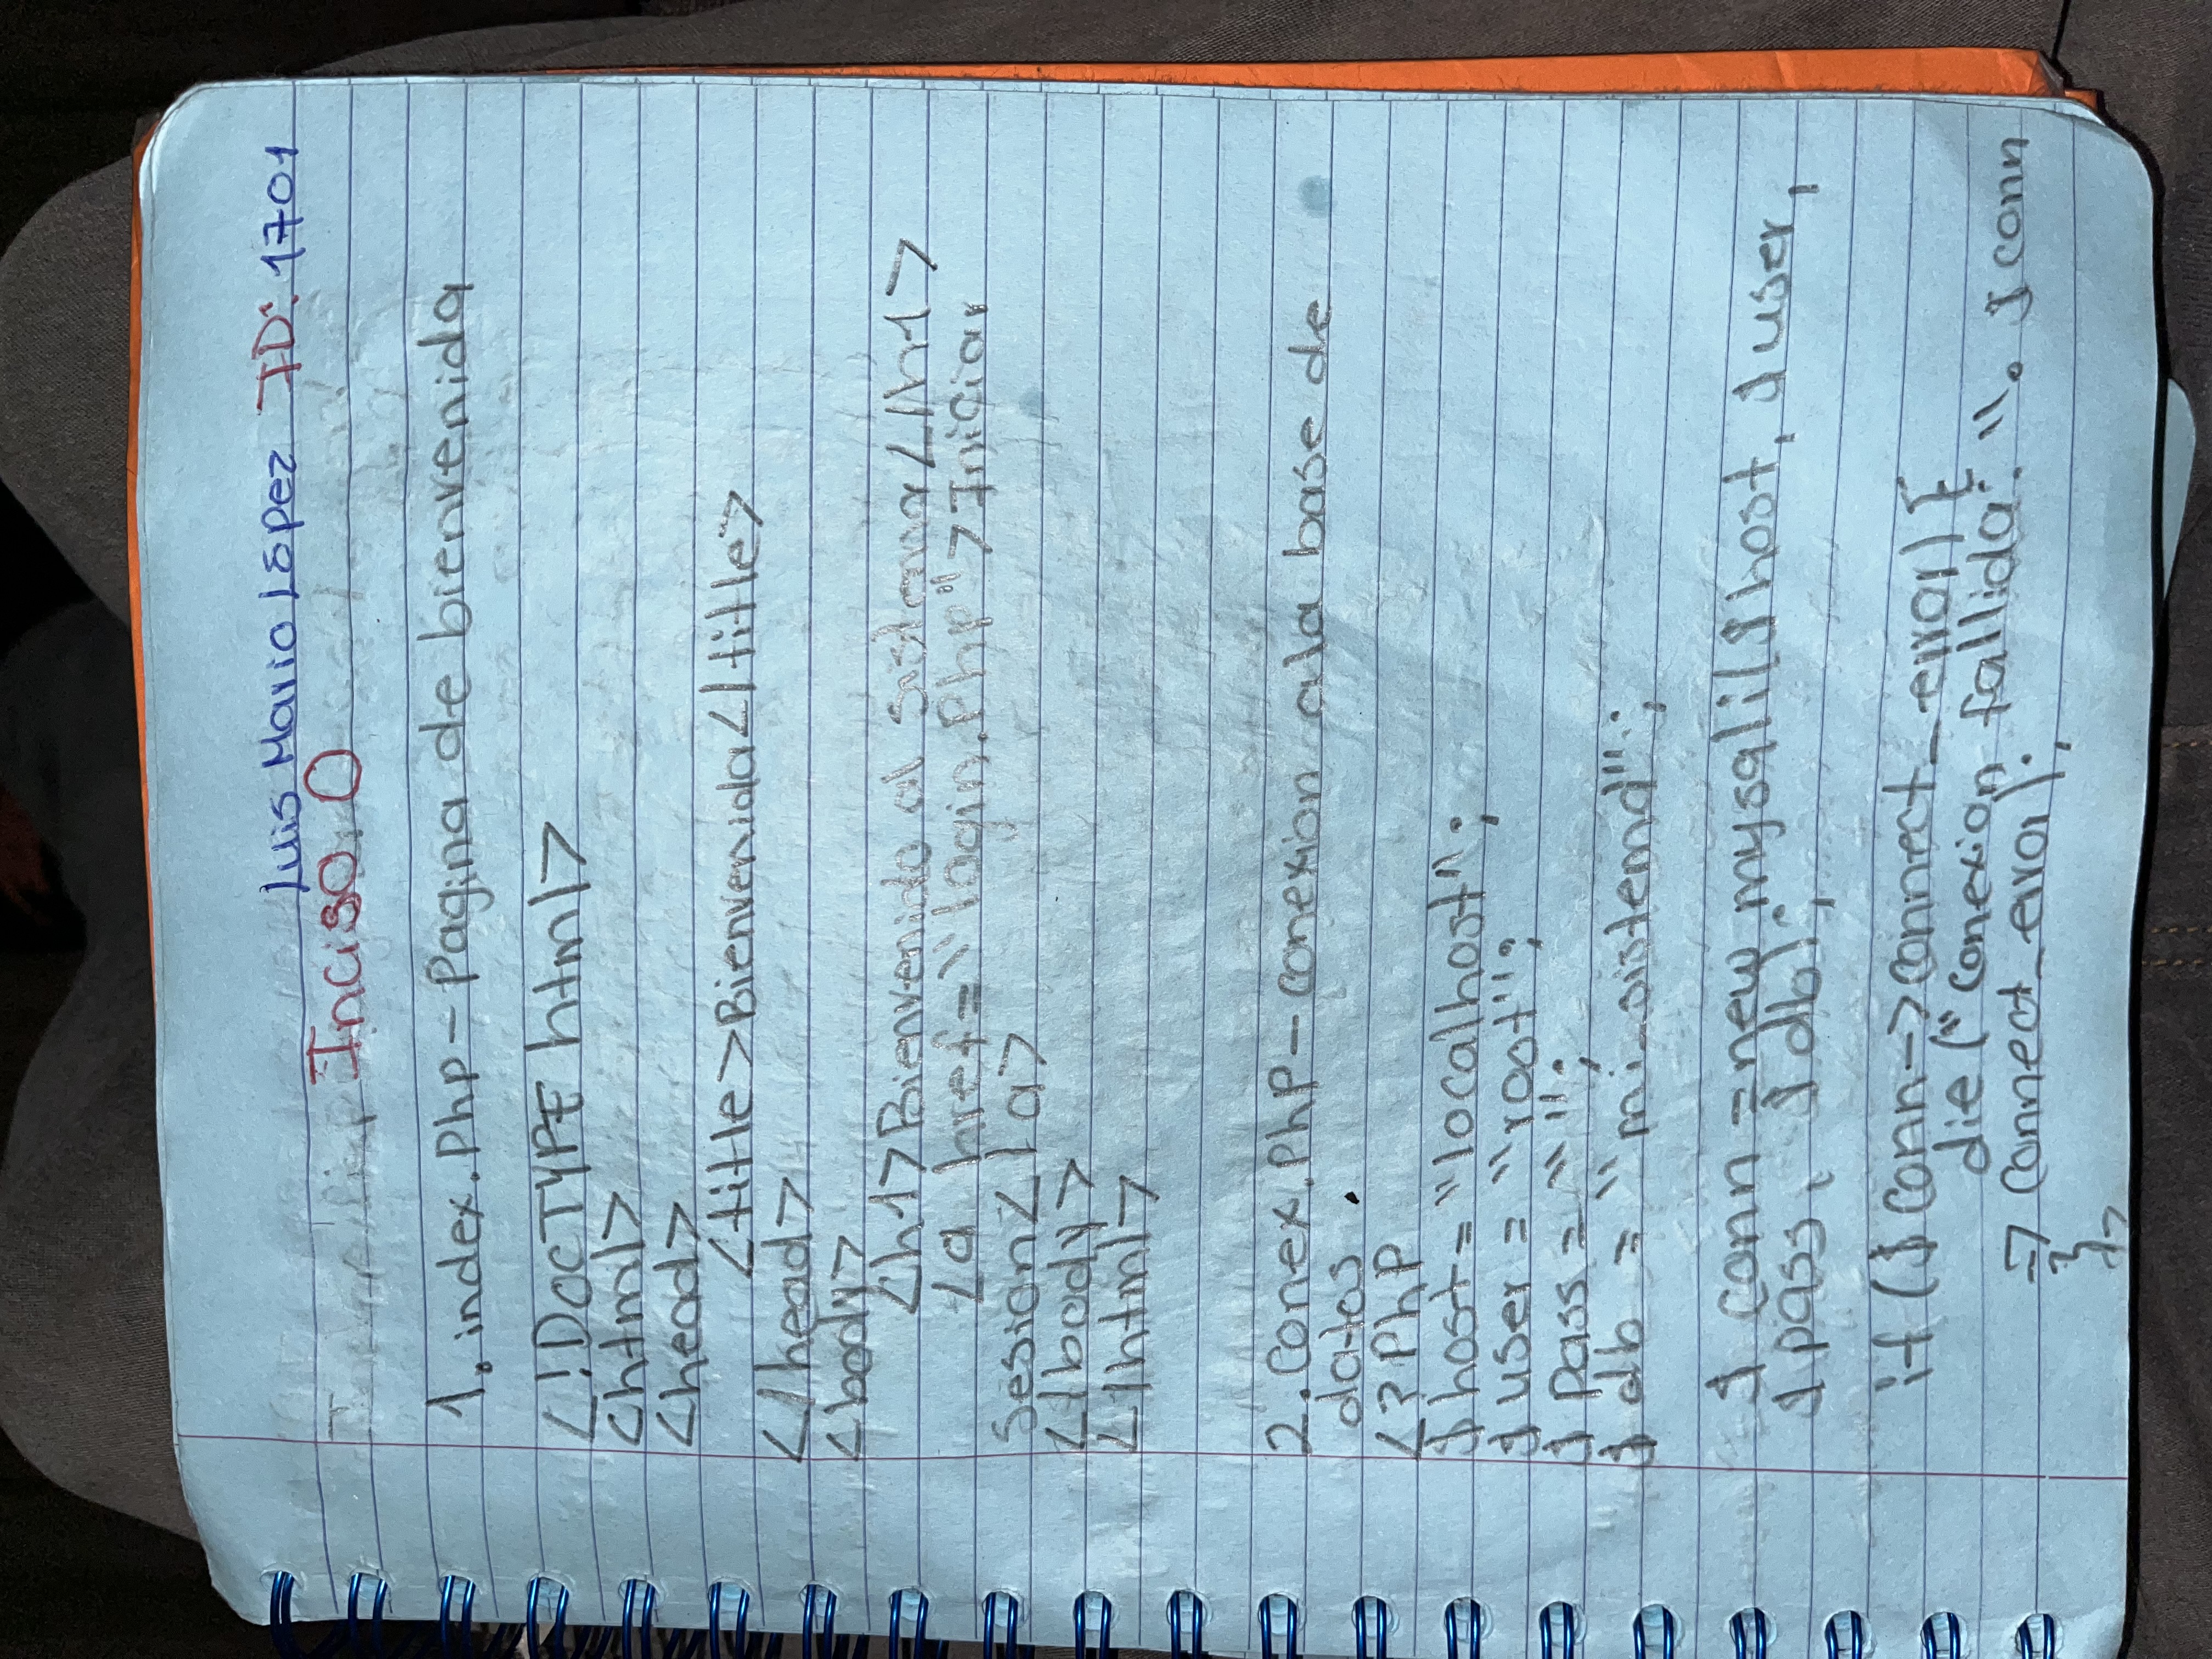 Luis Mario López ID: 1701
Inciso. O
1. index.Php - Pagina de bienvenida
<!DOCTYPE html>
<html>
<head>
<title>Bienvenida</title>
</head>
<body>
<h1>Bienvenido al sistema</h1>
<a href="login.Php">Iniciar
Sesion</a>
</body>
</html>
2. Conex.php - conexion ala base de
datos.
<?Php
$host = "localhost";
$user = "root";
$pass = "";
$db = "mi_sistema";
$conn = new mysqli($host, $user,
$pass, $db);
if ($conn->connect_error) {
die ("conexion fallida: ". $conn
-> connect_error);
}
?>